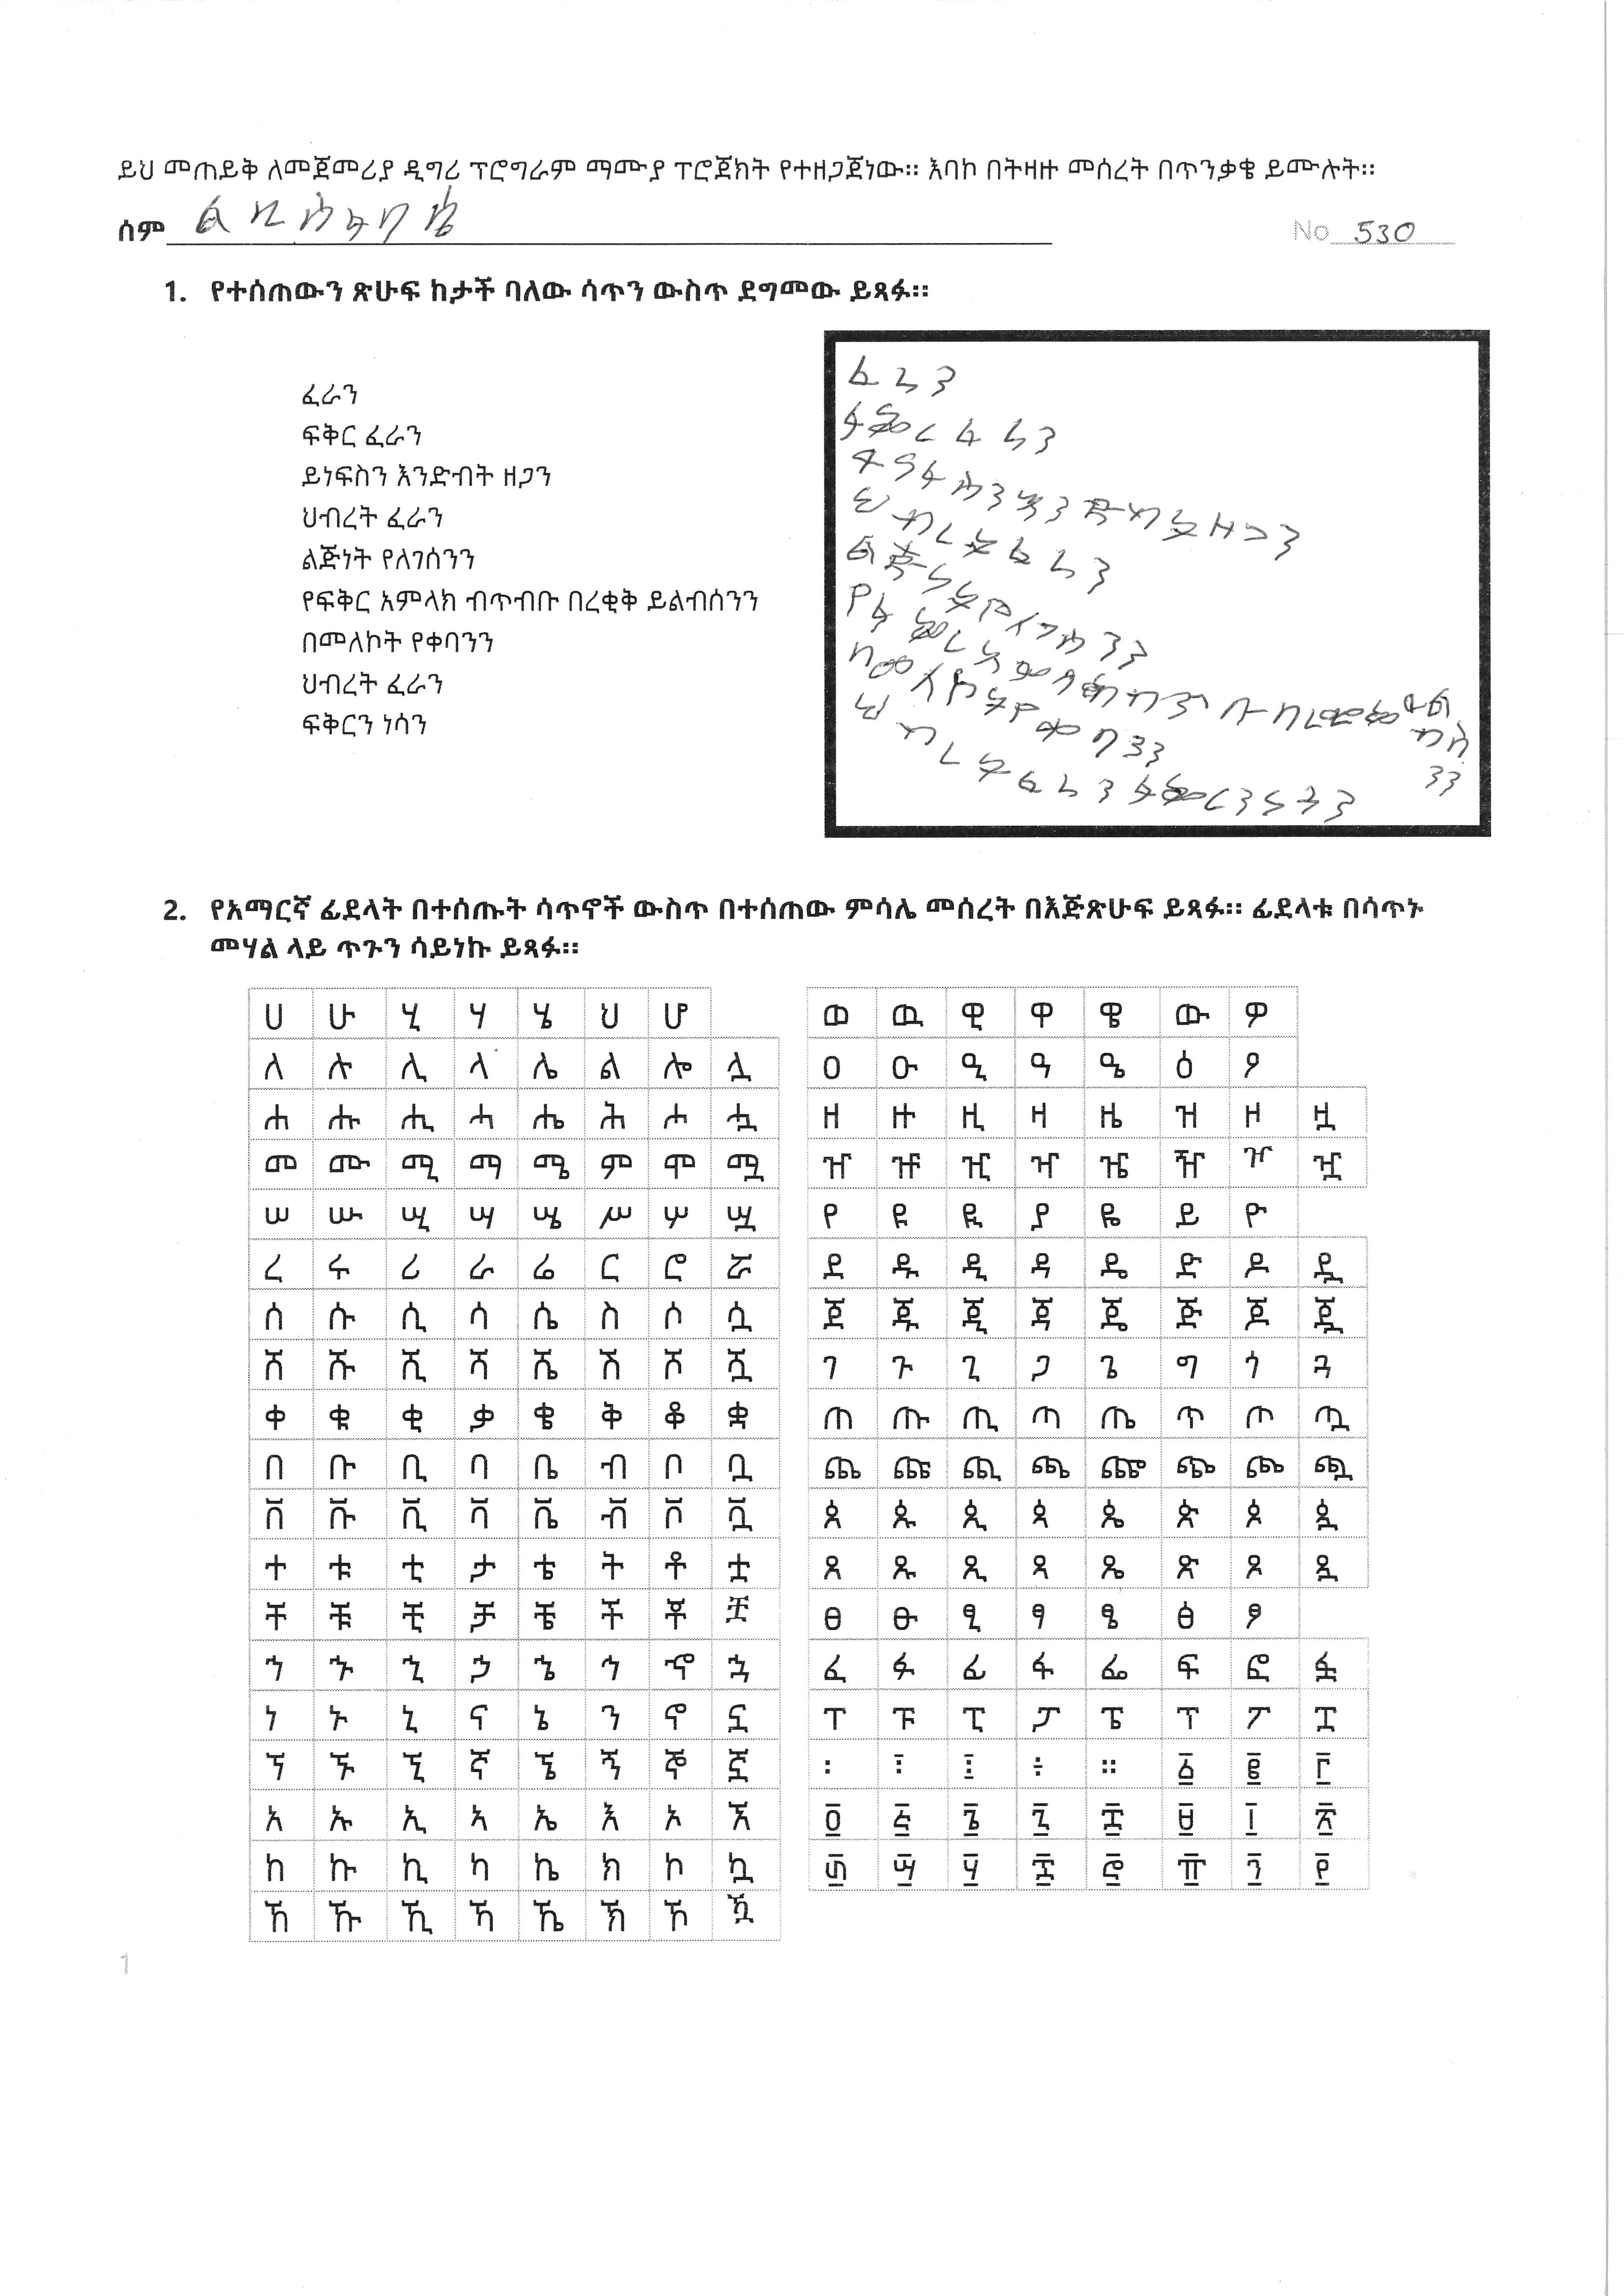 ይህ መጠይቅ ለመጀመሪያ ዲግሪ ፕሮግራም ማሙያ ፕሮጀክት የተዘጋጀነው። እባኮ በትዛዙ መሰረት በጥንቃቄ ይሙሉት።
ሰም
No 530
1. የተሰጠውን ጽሁፍ ከታች ባለው ሳጥን ውስጥ ደግመው ይጻፉ።
ፈራን
ፍቅር ፈራን
ይነፍስን እንድብት ዘጋን
ህብረት ፈራን
ልጅነት የለገሰንን
የፍቅር አምላክ ብጥብቡ በረቂቅ ይልብሰንን
በመለኮት የቀባንን
ህብረት ፈራን
ፍቅርን ነሳን
ፈራን
ፍቅር ፈራን
ይነፍስን እንድብት ዘጋን
ህብረት ፈራን
ልጅነት የለገሰንን
የፍቅር
በመለኮት የቀባንን
ህብረት ፈራን ፍቅርን ነሳን
2. የአማርኛ ፊደላት በተሰጡት ሳጥኖች ውስጥ በተሰጠው ምሳሌ መሰረት በእጅጽሁፍ ይጻፉ። ፊደላቱ በሳጥኑ
መሃል ላይ ጥጉን ሳይነኩ ይጻፉ።
ሀ ሁ ሂ ሃ ሄ ህ ሆ
ለ ሉ ሊ ላ ሌ ል ሎ ሏ
ሐ ሑ ሒ ሓ ሔ ሕ ሖ ሗ
መ ሙ ሚ ማ ሜ ም ሞ ሟ
ሠ ሡ ሢ ሣ ሤ ሥ ሦ ሧ
ረ ሩ ሪ ራ ሬ ር ሮ ሯ
ሰ ሱ ሲ ሳ ሴ ስ ሶ ሷ
ሸ ሹ ሺ ሻ ሼ ሽ ሾ ሿ
ቀ ቁ ቂ ቃ ቄ ቅ ቆ ቋ
በ ቡ ቢ ባ ቤ ብ ቦ ቧ
ቨ ቩ ቪ ቫ ቬ ቭ ቮ ቯ
ተ ቱ ቲ ታ ቴ ት ቶ ቷ
ቸ ቹ ቺ ቻ ቼ ች ቾ ቿ
ኀ ኁ ኂ ኃ ኄ ኅ ኆ ኋ
ነ ኑ ኒ ና ኔ ን ኖ ኗ
ኘ ኙ ኚ ኛ ኜ ኝ ኞ ኟ
አ ኡ ኢ ኣ ኤ እ ኦ ኧ
ከ ኩ ኪ ካ ኬ ክ ኮ ኳ
ኸ ኹ ኺ ኻ ኼ ኽ ኾ ዃ
ወ ዉ ዊ ዋ ዌ ው ዎ
ዐ ዑ ዒ ዓ ዔ ዕ ዖ
ዘ ዙ ዚ ዛ ዜ ዝ ዞ ዟ
ዠ ዡ ዢ ዣ ዤ ዥ ዦ ዧ
የ ዩ ዪ ያ ዬ ይ ዮ
ደ ዱ ዲ ዳ ዴ ድ ዶ ዷ
ጀ ጁ ጂ ጃ ጄ ጅ ጆ ጇ
ገ ጉ ጊ ጋ ጌ ግ ጎ ጓ
ጠ ጡ ጢ ጣ ጤ ጥ ጦ ጧ
ጨ ጩ ጪ ጫ ጬ ጭ ጮ ጯ
ጰ ጱ ጲ ጳ ጴ ጵ ጶ ጷ
ጸ ጹ ጺ ጻ ጼ ጽ ጾ ጿ
ፀ ፁ ፂ ፃ ፄ ፅ ፆ
ፈ ፉ ፊ ፋ ፌ ፍ ፎ ፏ
ፐ ፑ ፒ ፓ ፔ ፕ ፖ ፗ
፡ ፣ ፤ ፥ ። ፩ ፪ ፫
፬ ፭ ፮ ፯ ፰ ፱ ፲ ፳
፴ ፵ ፶ ፷ ፸ ፹ ፺ ፻
1